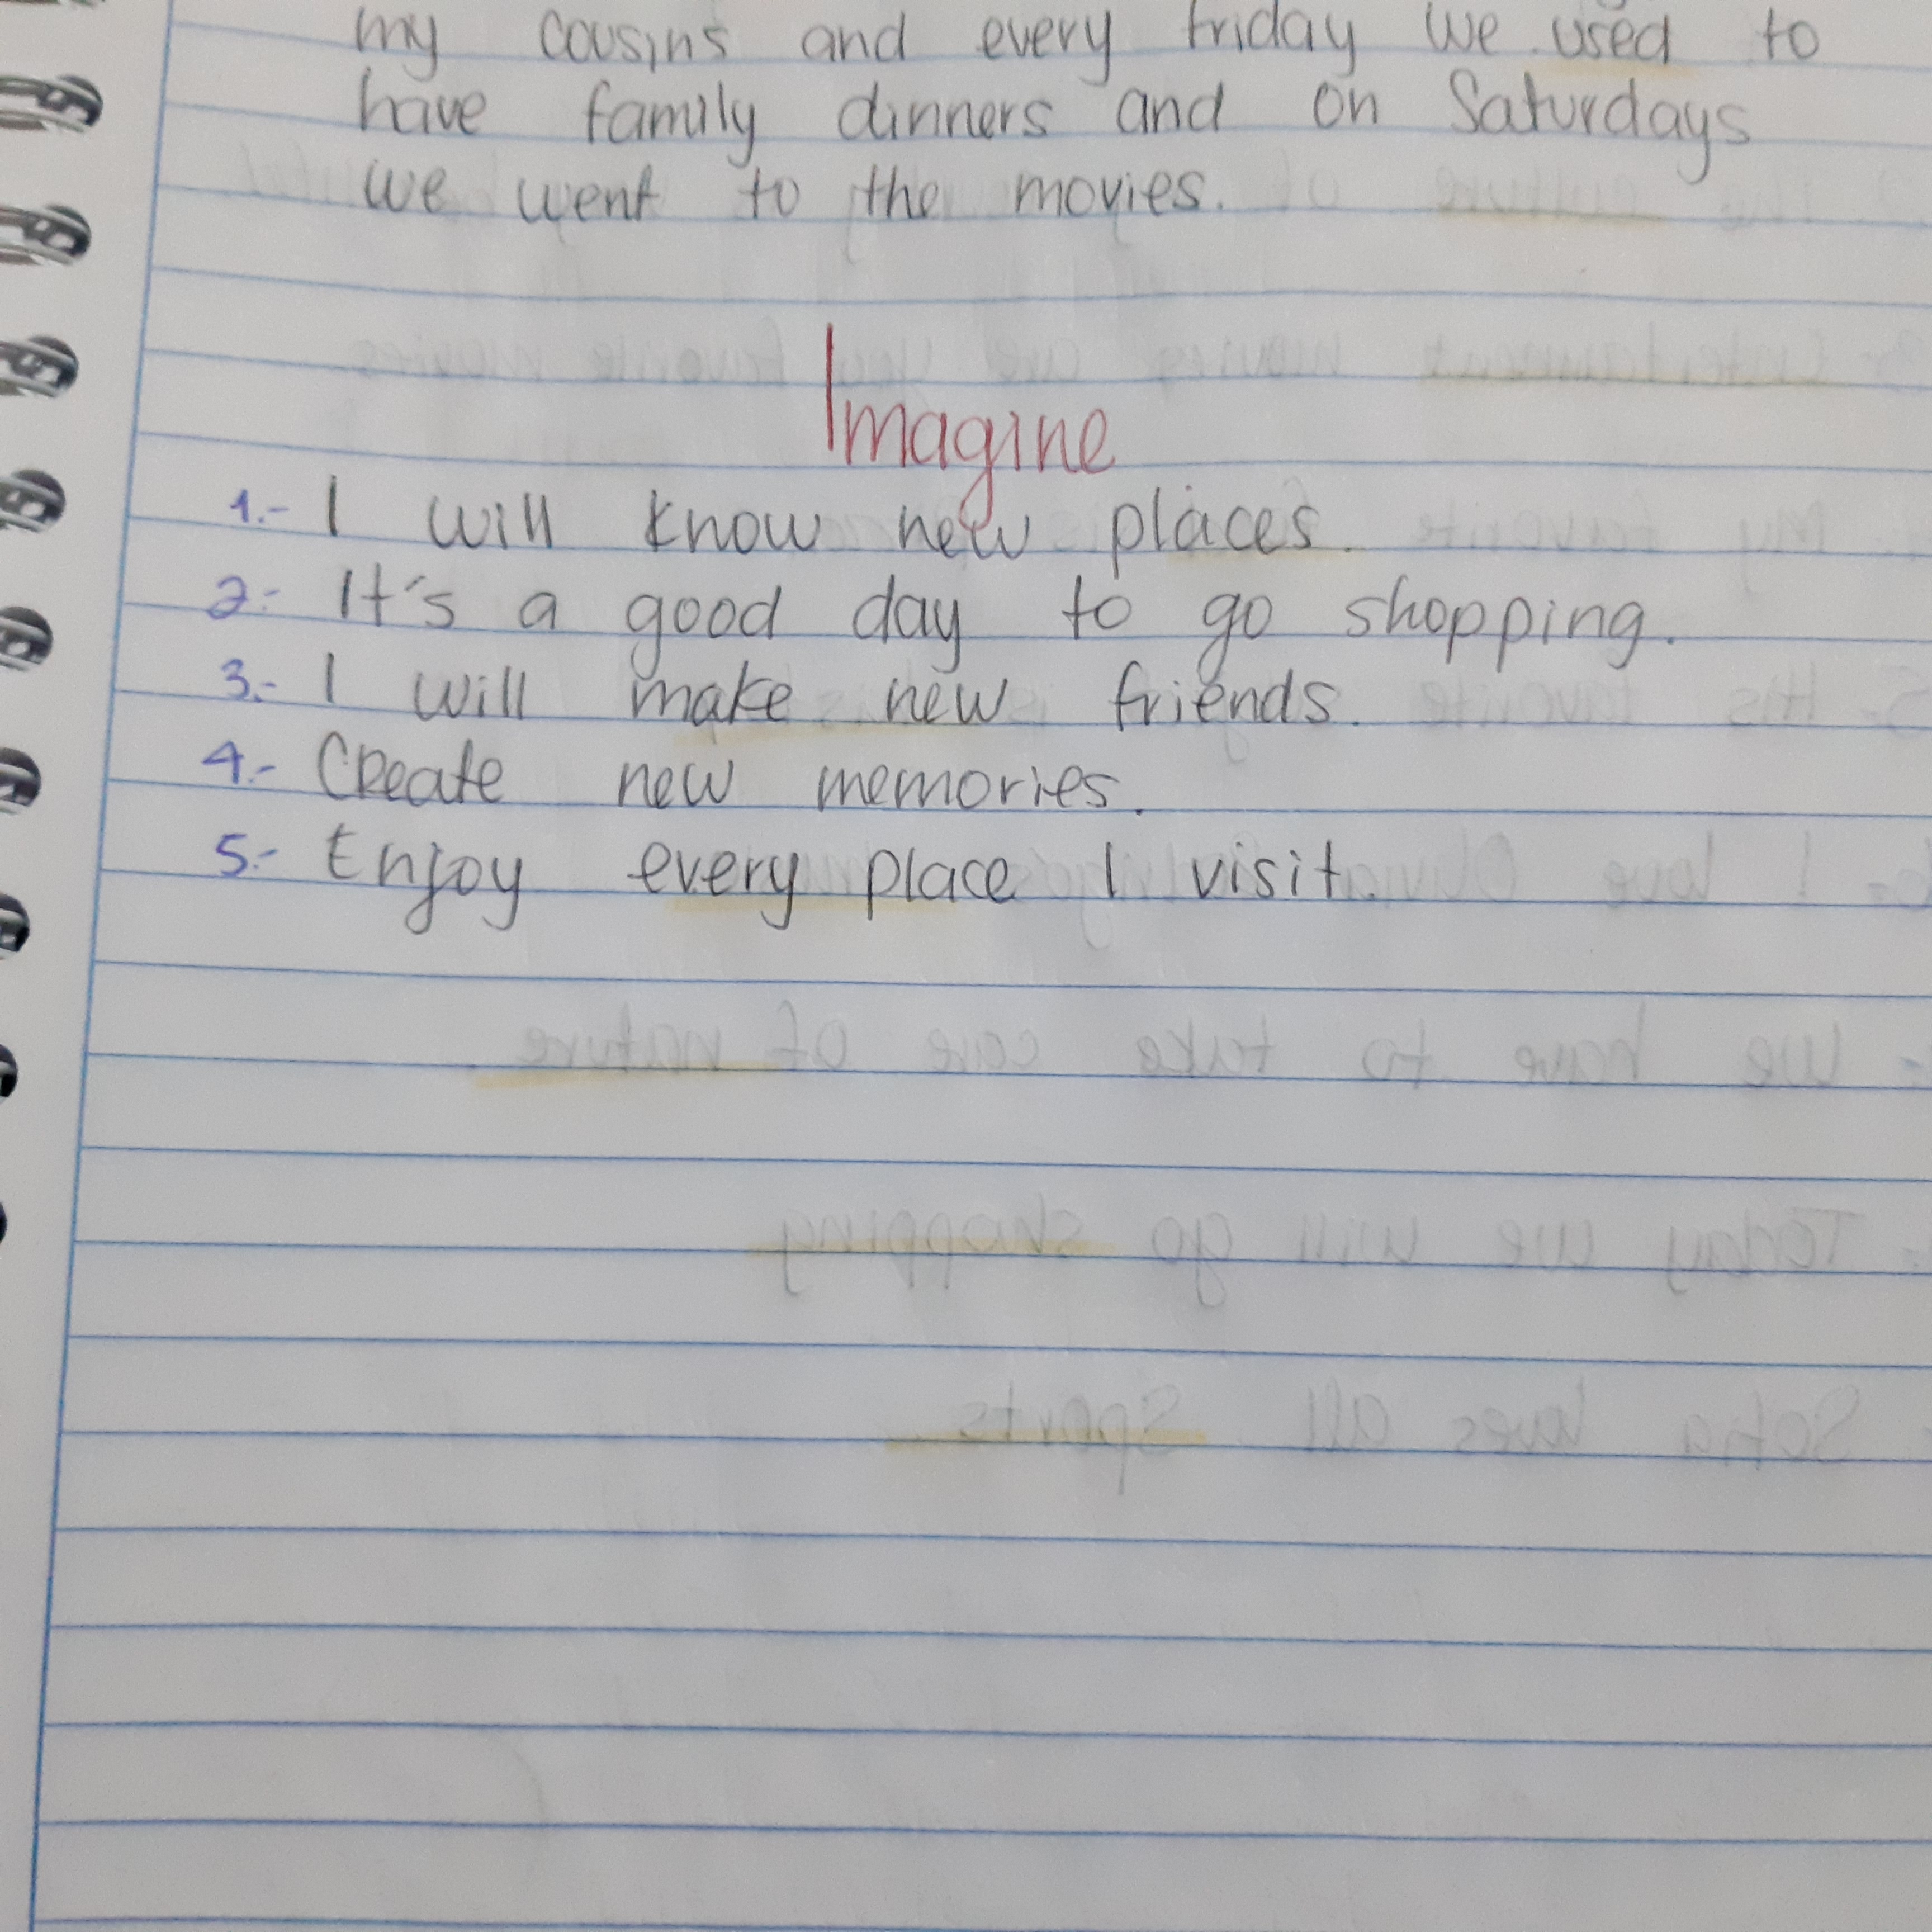 my cousins and every friday we used to
have family dinners and on Saturdays
we went to the movies.
Imagine
1.- I will know new places.
2.- It's a good day to go shopping.
3.- I will make new friends.
4.- Create new memories.
5.- Enjoy every place I visit.